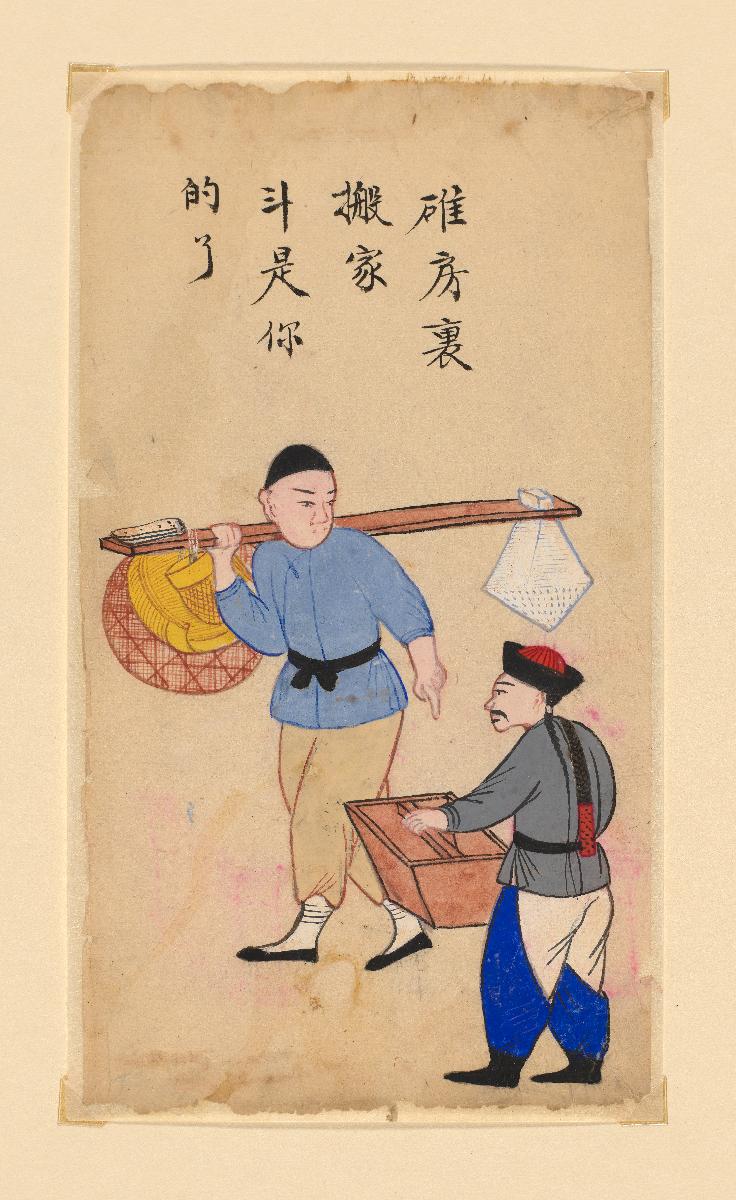 碓房裏
搬家
斗是你
的了